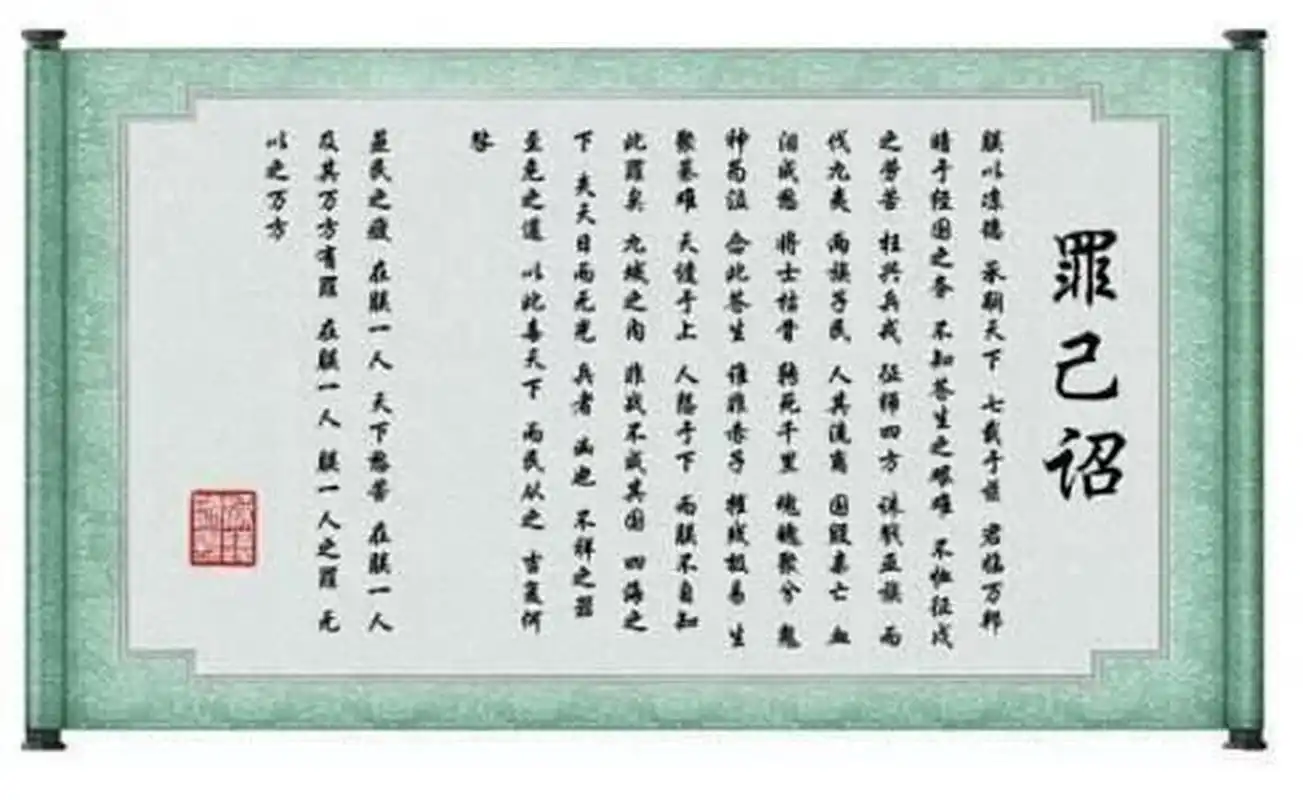 罪己诏
朕以凉德 承嗣天下 七载于兹 君临万邦
暗于经国之务 不知苍生之艰难 不恤征戍
之劳苦 枉兴兵戎 征师四方 诛戮亚族 而
伐九夷 两族子民 人其流离 国毁家亡 血
泪成愁 将士枯骨 转死千里 魂魄聚兮 鬼
神为泣 念此苍生 谁非赤子 摧残极易 生
聚甚难 天谴于上 人怨于下 而朕不自知
此罪矣 九域之内 非战不成其国 四海之
下 夫天日而无光 兵者 凶也 不祥之器
至危之道 以此毒天下 而民从之 吉复何
咎
万方有罪 在朕一人 朕一人之罪 无
以之万方